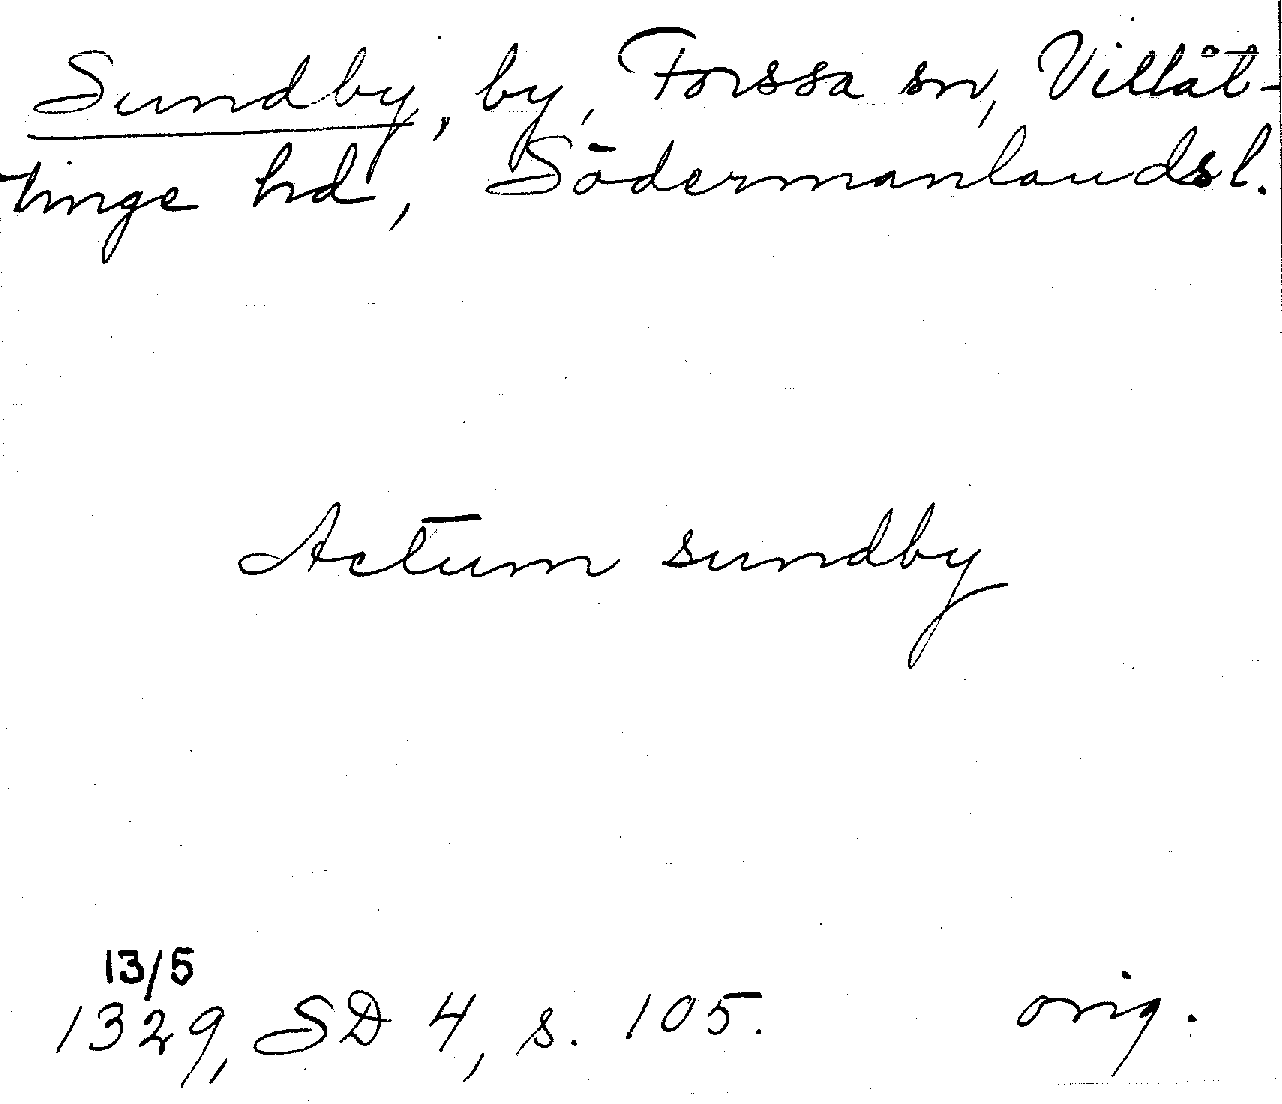 Sundby, by, Forssa sn, Villåt-
tinge hd, Södermanlandsl.
Actum sundby
13/5
1329, SD 4, s. 105. orig.